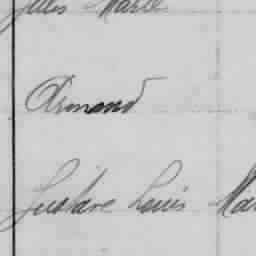 Jules Marie
Armand
Gustave Louis Mar